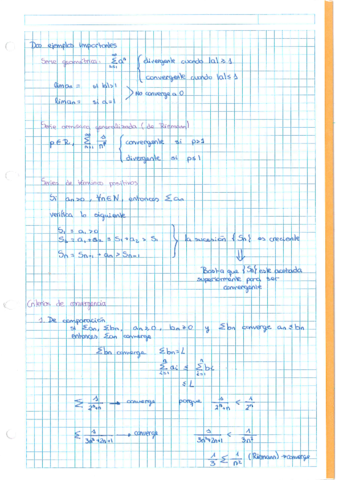 Dos ejemplos importantes
Serie geométrica: ∑ aⁿ { divergente cuando |a| ≥ 1
convergente cuando |a| ≤ 1
lim an = si |a|>1
lim an = si a=1 } no converge a 0
Serie armónica generalizada (de Riemann)
p∈R, ∑ 1/nᵖ { convergente si p>1
divergente si p≤1
Series de términos positivos
Si an>0, ∀n∈N, entonces ∑an
verifica lo siguiente
S1 = a1 >0
S2 = a1+a2 = S1+a2 > S1
Sn = Sn-1 + an > Sn-1
la sucesión {Sn} es creciente
Basta que {Sn} esté acotada
superiormente para ser
convergente
Criterios de convergencia
1. De comparación
si ∑an, ∑bn, an≥0, bn≥0 y ∑bn converge an≤bn
entonces ∑an converge
∑bn converge ∑bn=L
∑ ai ≤ ∑ bi
≤ L
∑ 1/(2ⁿ+n) → converge porque 1/(2ⁿ+n) < 1/2ⁿ
∑ 1/(3n²+2n+1) → converge 1/(3n²+2n+1) < 1/3n²
1/3 ∑ 1/n² (Riemann) → converge